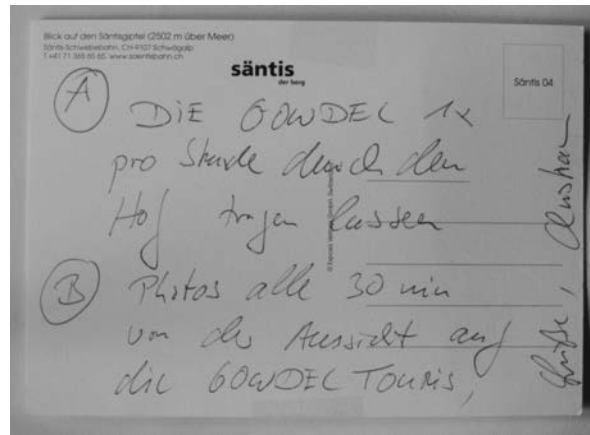 Blick auf den Säntisgipfel (2502 m über Meer)
Säntis-Schwebebahn, CH-9107 Schwägalp
T +41 71 365 65 65, www.saentisbahn.ch
säntis
der berg
Säntis 04
A
DIE GONDEL 1x
pro Stunde durch den
Hof tragen lassen
B
Photos alle 30 min
von der Aussicht auf
die GONDEL TOURIS,
Grüße, Christian